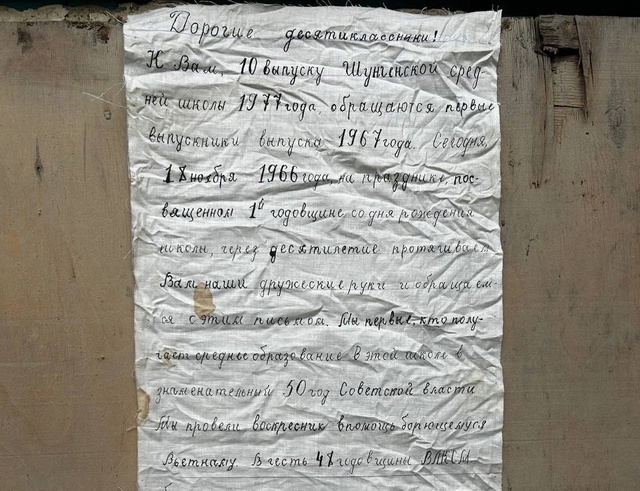 Дорогие десятиклассники!
К Вам, 10 выпуску Шунгенской сред-
ней школы 1977 года, обращаются первые
выпускники выпуска 1967 года. Сегодня,
18 ноября 1966 года, на празднике, пос-
вященном 1й годовщине со дня рождения
школы, через десятилетие протягиваем
Вам наши дружеские руки и обращаем-
ся с этим письмом. Мы первые, кто полу-
чает среднее образование в этой школе в
знаменательный 50 год Советской власти
Мы провели воскресник в помощь борющемуся
Вьетнаму. В честь 48 годовщины ВЛКСМ